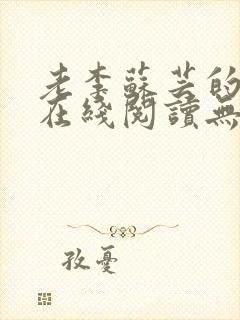 老李蘇芸的
在綫閱讀無
孜憂